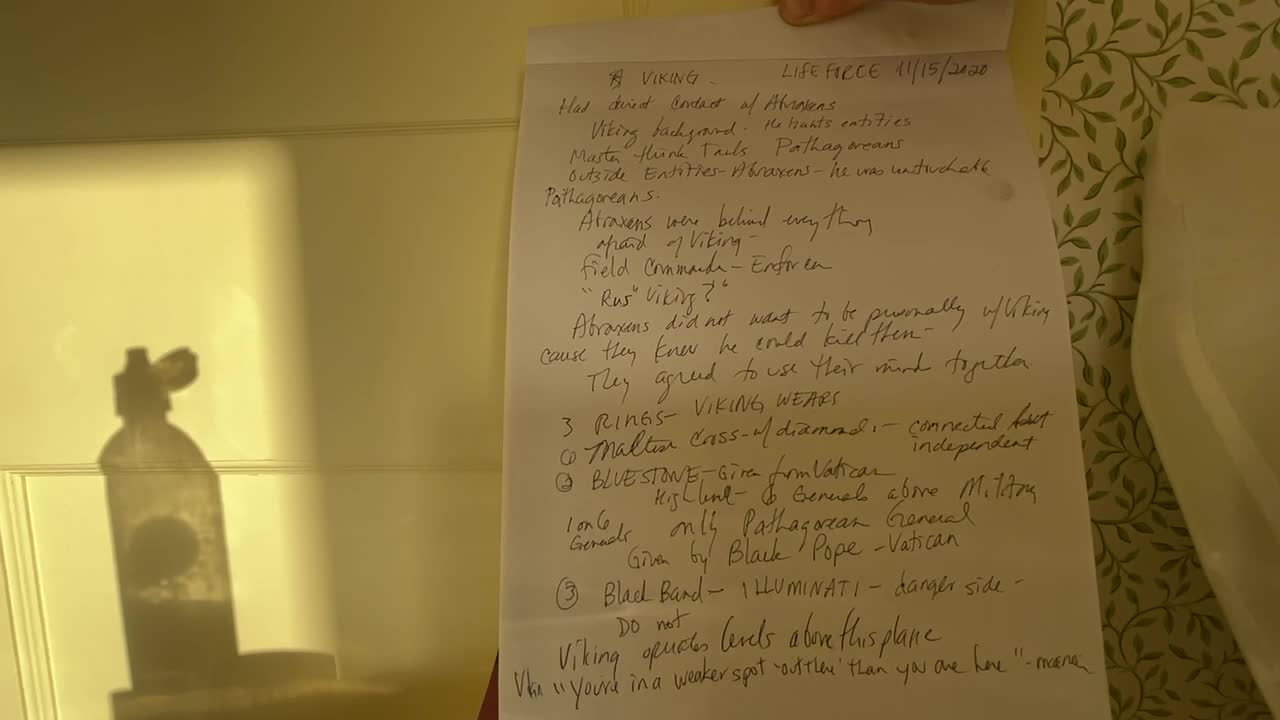 VIKING - LIFEFORCE 11/15/2020
Had direct contact w/ Abraxens
Viking background. He hunts entities
Master think Tanks Pathagoreans
outside Entities - Abraxens - he was untouchable
Pathagoreans.
Abraxens were behind everything
afraid of Viking -
Field Commander - Enforcer
"Rus" Viking?"
Abraxens did not want to be personally w/ Viking
cause they knew he could kill them -
They agreed to use their mind together.
3 RINGS - VIKING WEARS
① Maltese Cross - w/ diamond. - connected but
independent
② BLUESTONE - Given from Vatican
High level - 6 Generals above Military
1 on 6 only Pathagorean General
Generals
Given by Black Pope - Vatican
③ Black Band - ILLUMINATI - danger side -
DO not
Viking operates levels above this plane
"You're in a weaker spot 'out there' than you are here" -